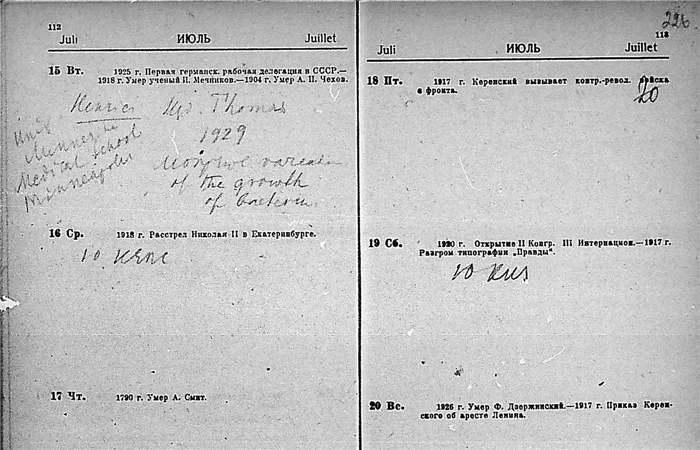 112
Juli ИЮЛЬ Juillet
15 Вт. 1925 г. Первая германск. рабочая делегация в СССР.—
1918 г. Умер ученый И. Мечников.—1904 г. Умер А. П. Чехов.
Henrici Thomas
1929
of the growth
of
Medical School
Minneapolis
16 Ср. 1918 г. Расстрел Николая II в Екатеринбурге.
10
17 Чт. 1790 г. Умер А. Смит.
226
113
Juli ИЮЛЬ Juillet
18 Пт. 1917 г. Керенский вызывает контр.-револ. войска
с фронта.
20
19 Сб. 1920 г. Открытие II Конгр. III Интернацион.—1917 г.
Разгром типографии „Правды“.
10
20 Вс. 1926 г. Умер Ф. Дзержинский.—1917 г. Приказ Керен-
ского об аресте Ленина.